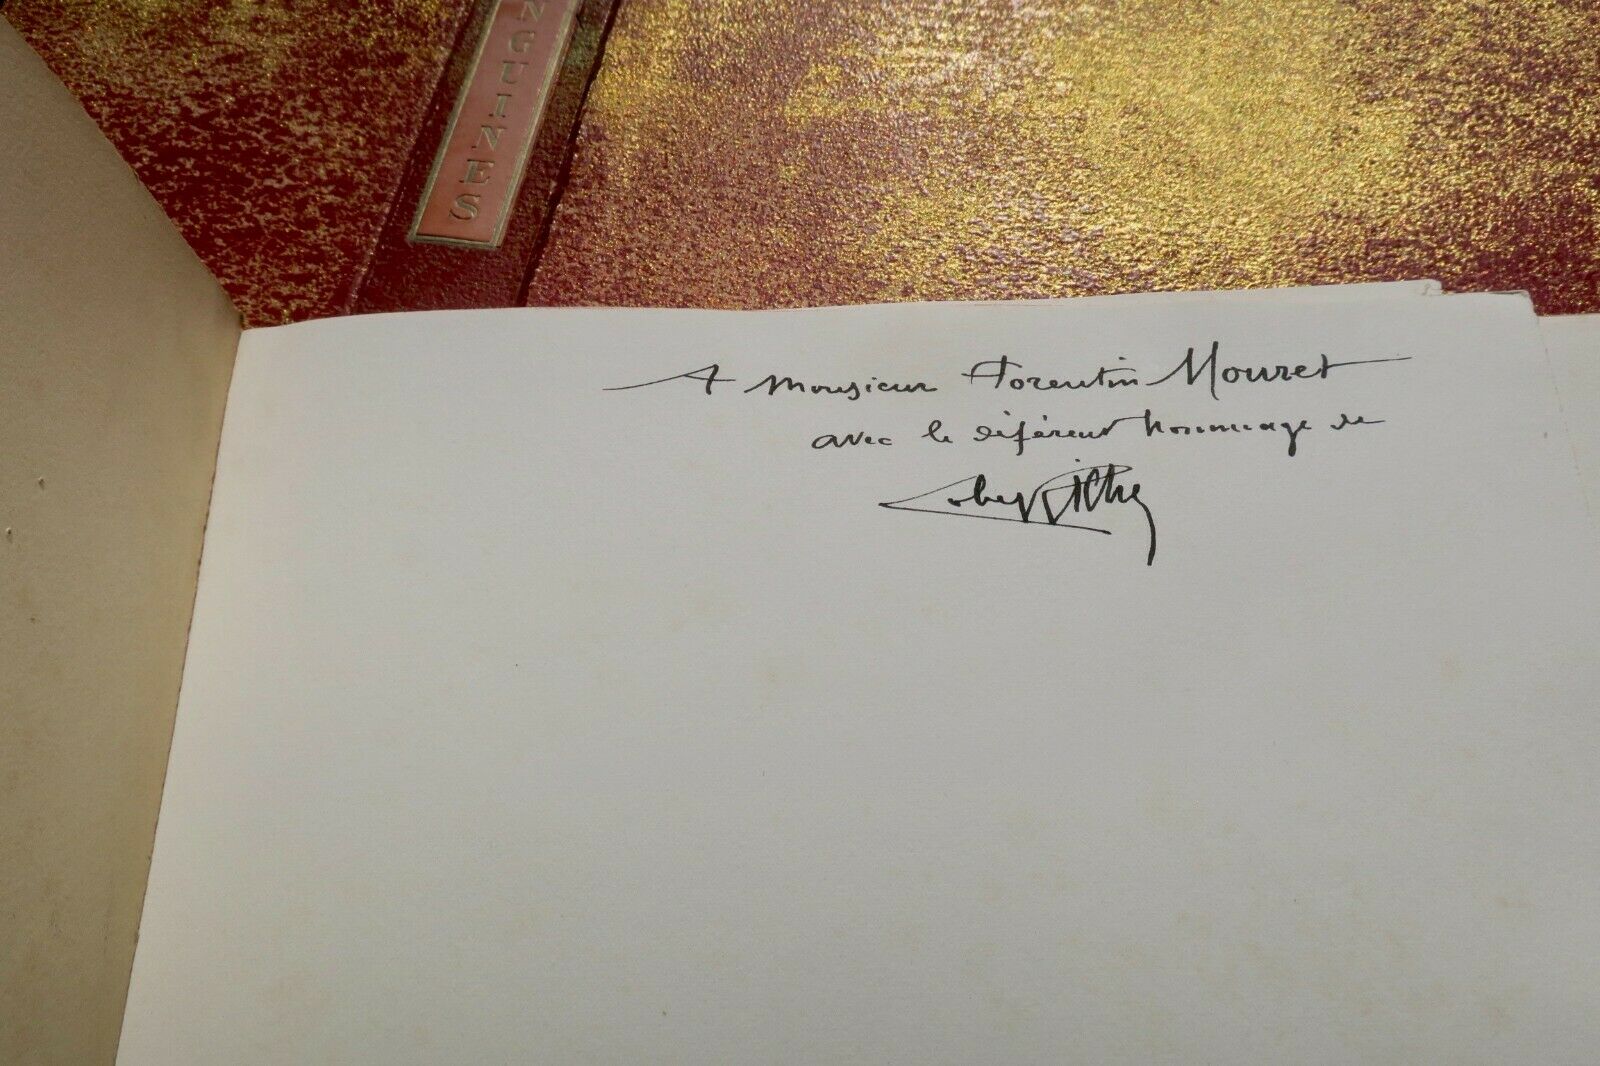 NGUINES
A Monsieur Florentin Mouret
avec le déférent hommage de